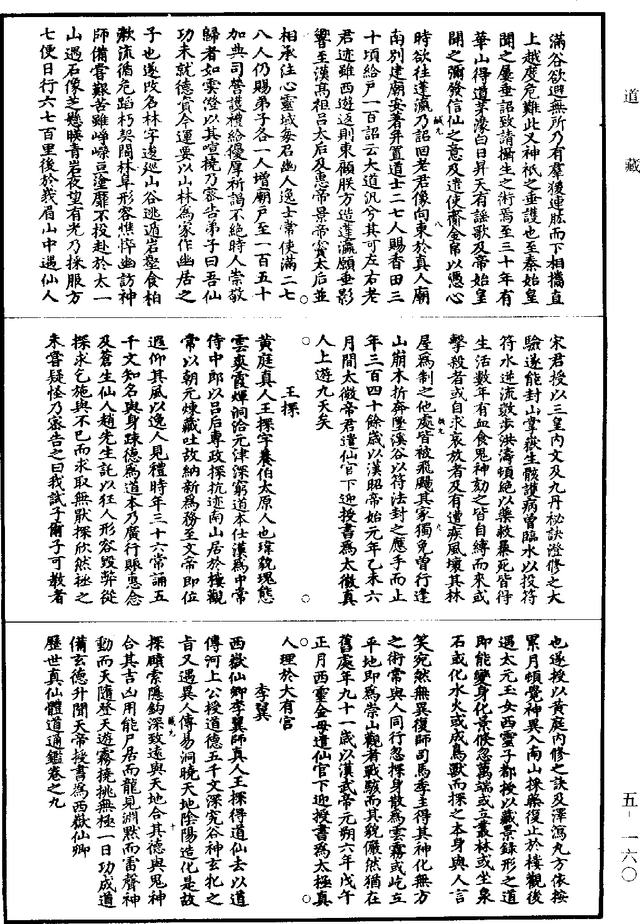 道藏
滿谷欲避無所乃有羣猨連胝而下相攜直
上越度危難此又神祇之垂護也至秦始皇
聞之屢垂詔致請攝生之術焉至三十年有
華山得道茅濛白日昇天有謠歌及帝始皇
聞之彌發信仙之意及遣使齎金帛以憑心
時欲往蓬瀛乃詔回老君像向東於真人廟
南別建廟安著并置道士二七人賜香田三
十頃給戶一百詔云大道汎兮其可左右老
君迹雖西遊返則東顧朕方造蓬瀛願垂影
響至漢高祖呂太后及惠帝景帝竇太后並
相承注心靈城每召幽人逸士常使滿二七
八人仍賜弟子各一人增廟戶至一百五十
加典司營護禮給優厚祈謁不絕時人崇敬
歸者如雲澄以其喧撓乃密告弟子曰吾仙
功未就德實今運要以山林為家作幽居之
子也遂改名林字遠巡山谷逃遁岩壑食柏
漱流循危蹈朽契闊林阜形容憔悴幽訪神
師備嘗艱苦雖崢嶸豆塗靡不投赴於太一
山遇石像芝懸映青岩夜望有光乃採服方
七便日行六七百里後於峩眉山中遇仙人
宋君授以三皇內文及九丹秘訣澄修之大
驗遂能封山掌嶽生骸護病嘗臨水以投符
符水逆流散步洪濤頓絕以藥救暴死皆得
生活數年有血食鬼神劾之皆自縛而來或
擊殺者或自求哀放者及有遭疾風壞其林
屋為制之他處皆被飛颺其家獨免曾行逢
山崩木折奔墜溪谷以符法封之應手而止
年三百四十餘歲以漢昭帝始元年乙未六
月間太微帝君遣仙官下迎授書為太微真
人上遊九天矣
王探
黃庭真人王探字養伯太原人也瑋貌瑰態
雲爽霞輝洞洽元津深窮道本仕漢為中常
侍中郎以呂后專政探抗迹南山居於樓觀
常以朝元煉藏吐故納新為務至文帝即位
遐仰其風以逸人見禮時年三十六常誦五
千文知名與身疎德為道本乃廣行賑惠念
及蒼生仙人趙先生託以狂人形容毀弊從
探求乞施與不已而求取無猒探欣然拯之
未嘗疑怪乃密告之曰我試子爾子可教者
也遂授以黃庭內修之訣及澤瀉九方依按
累月頓覺神異入南山採藥復止於樓觀後
遇太元玉女西靈子都授以藏景錄形之道
即能變身化景候忽萬端或立叢林或坐泉
石或化水火或成鳥獸而探之本身與人言
笑宛然無異復師司馬季主得其神化無方
之術常與人同行忽探身散為雲霧或屹立
平地即為崇山觀者戰駭而其貌儼然猶在
舊處年九十一歲以漢武帝元朔六年戊午
正月西靈金母遣仙官下迎授書為太極真
人理於大有宮
李翼
西嶽仙卿李翼師真人王探得道仙去以道
傳河上公授道德五千文深究谷神玄牝之
旨又遇異人傳易洞曉天地陰陽造化是故
探賾索隱鈎深致遠與天地合其德與鬼神
合其吉凶用能尸居而龍見淵默而雷聲神
動而天隨登天遊霧撓挑無極一日功成道
備玄德升聞天帝授書為西嶽仙卿
歷世真仙體道通鑑卷之九
五－一六〇